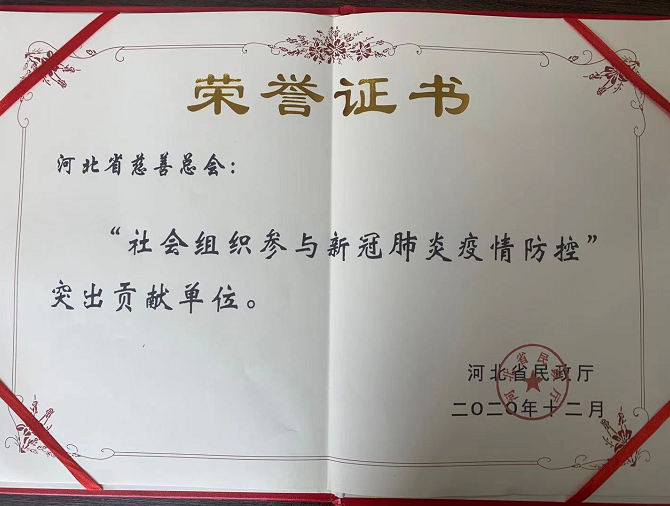 荣誉证书
河北省慈善总会：
“社会组织参与新冠肺炎疫情防控”
突出贡献单位。
河北省民政厅
二〇二〇年十二月